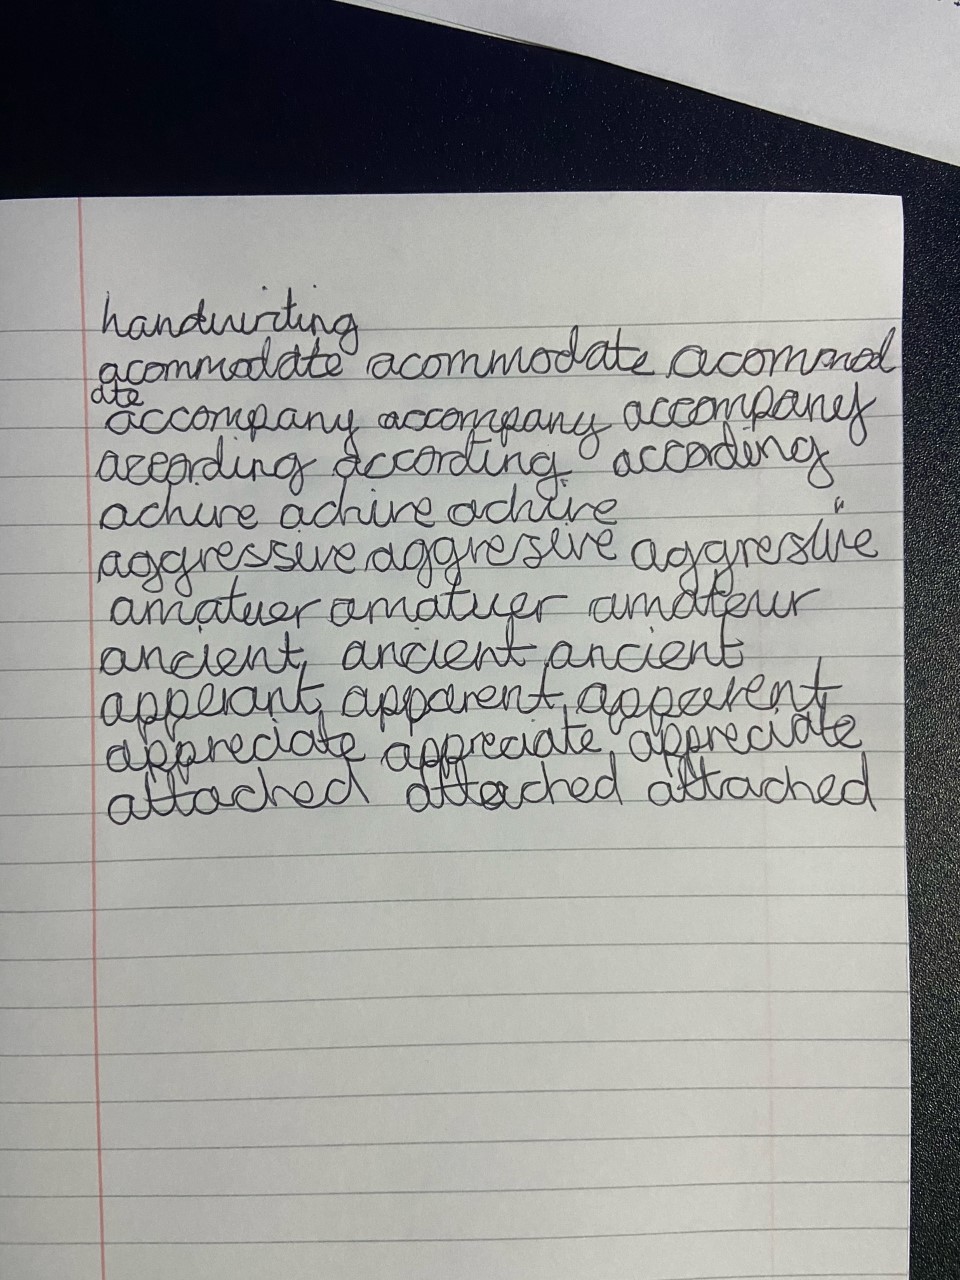 handwriting
acommodate acommodate acommod
ate
accompany accompany accompany
according according according
aggressive aggressive aggressive
amatuer amatuer amateur
ancient, ancient, ancient
apperant, apparent, apparent
appreciate appreciate, appreciate
attached attached attached